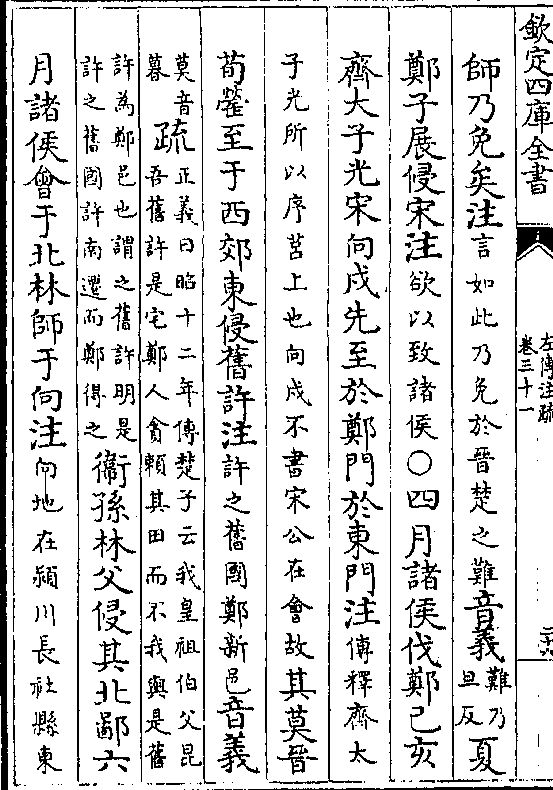 欽定四庫全書
左傳注疏
卷三十一
師乃免矣注言如此乃免於晉楚之難音義難乃
旦反夏
鄭子展侵宋注欲以致諸侯○四月諸侯伐鄭己亥
齊大子光宋向戌先至於鄭門於東門注傳釋齊太
子光所以序莒上也向戌不書宋公在會故其莫晉
荀罃至于西郊東侵舊許注許之舊國鄭新邑音義
莫音
暮疏正義曰昭十二年傳楚子云我皇祖伯父昆
吾舊許是宅鄭人貪賴其田而不我與是舊
許為鄭邑也謂之舊許明是
許之舊國許南遷而鄭得之衞孫林父侵其北鄙六
月諸侯會于北林師于向注向地在潁川長社縣東